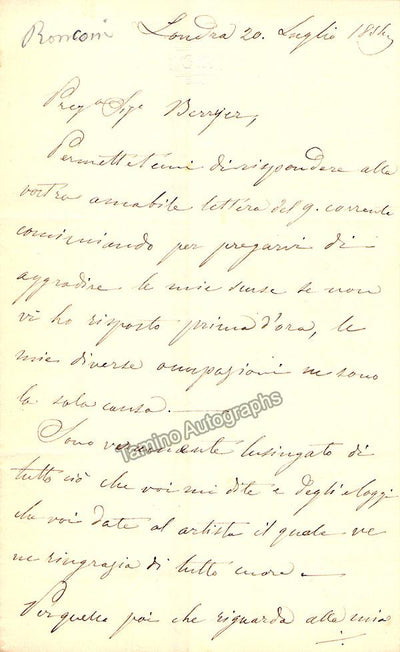 Ronconi Londra 20. Luglio
Preg.ª Sig.ª Berryer,
Permettetemi di rispondere alla
vostra amabile lettera del 9. corrente
cominciando per pregarvi di
aggradire le mie scuse se non
vi ho risposto prima d'ora, le
mie diverse occupazioni ne sono
la sola causa.
Sono veramente lusingato di
tutto ciò che voi mi dite e degli elogj
che voi date al artista il quale ve
ne ringrazia di tutto cuore.
Per quello poi che riguarda alla mia
Tamino Autographs